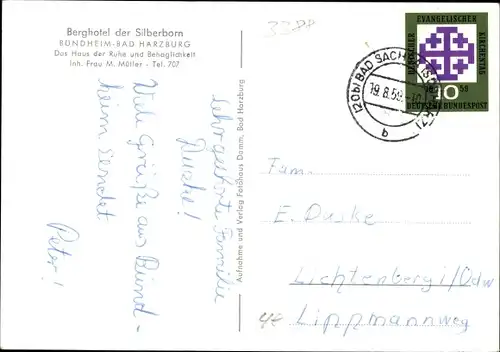 Berghotel der Silberborn
BÜNDHEIM-BAD HARZBURG
Das Haus der Ruhe und Behaglichkeit
Inh. Frau M. Müller - Tel. 707
Sehr geehrte Familie
Duske!
Viele Grüße aus Bünd-
heim sendet
Peter!
Aufnahme und Verlag Fotohaus Damm, Bad Harzburg
DEUTSCHER EVANGELISCHER KIRCHENTAG
1959
10
DEUTSCHE BUNDESPOST
(20b) BAD SACHSA (SÜDHARZ)
19.8.59
b
Fam.
E. Duske
Lichtenberg i/Odw
Lippmannweg